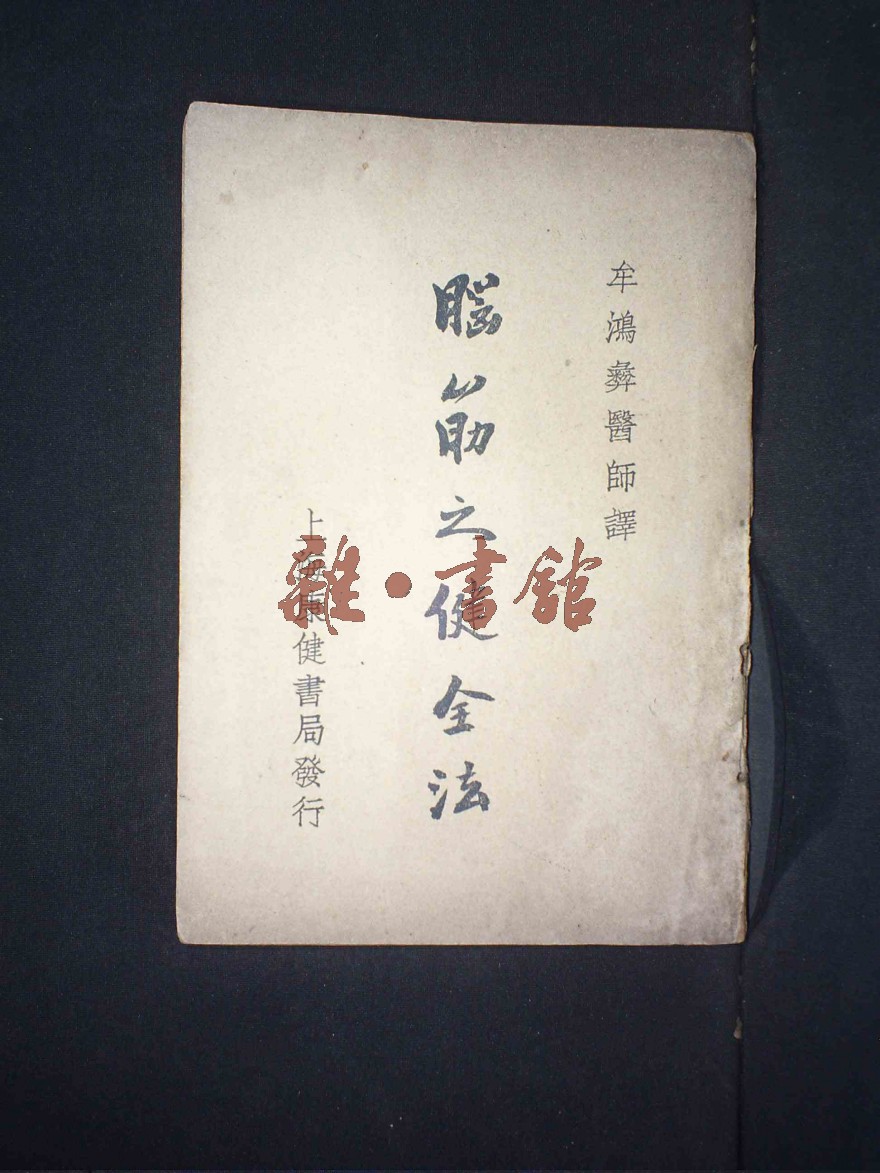 牟鴻彝醫師譯
腦筋之健全法
上海康健書局發行
雜·書館